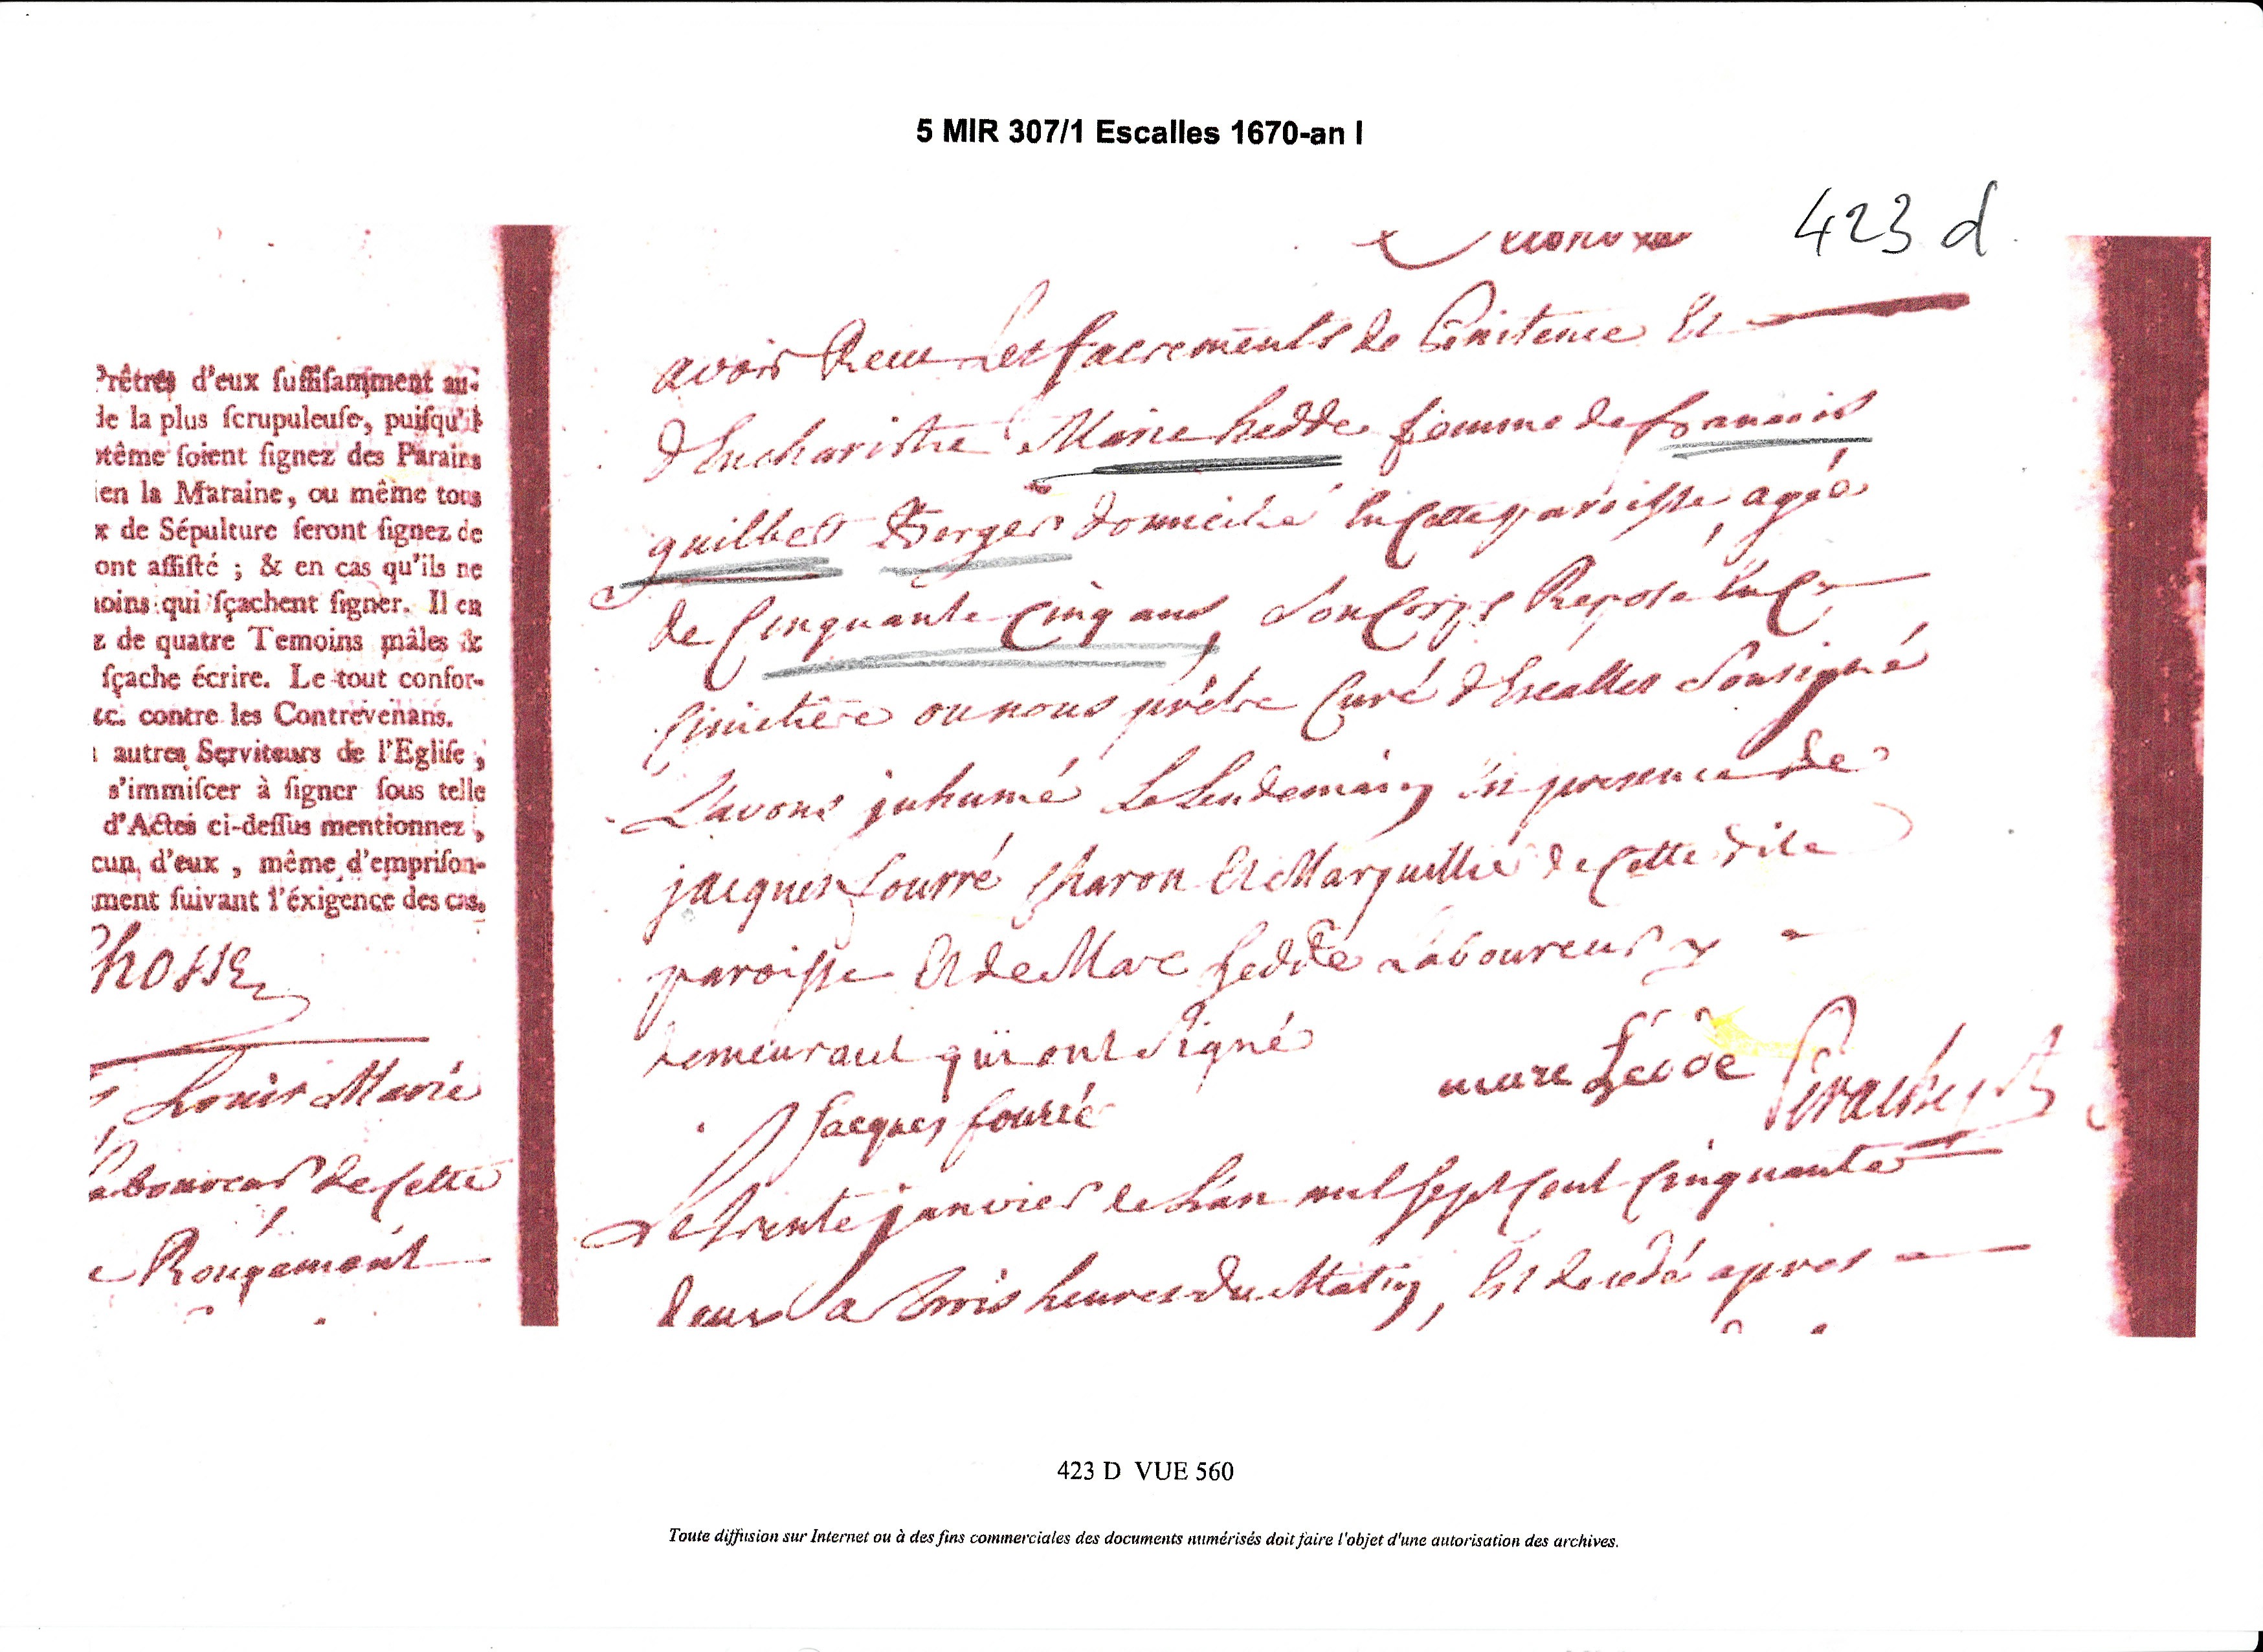 5 MIR 307/1 Escalles 1670-an I
423 d
Prêtres d'eux suffisamment au-
de la plus scrupuleuse, puisqu'il
ptême soient signez des Parains
ien la Maraine, ou même tous
x de Sépulture seront signez de
ont assisté ; & en cas qu'ils ne
noins qui sçachent signer. Il en
z de quatre Temoins mâles &
sçache écrire. Le tout confor-
&c. contre les Contrevenans.
autres Serviteurs de l'Eglise ,
s'immiscer à signer sous telle
d'Actes ci-dessus mentionnez ,
cun d'eux , même d'emprison-
ment suivant l'éxigence des cas.
Louis Marie
Laboureur de cette
Rougemont
avoir Receu Les sacrements de Penitence Et
d'Eucharistie Marie hedde femme de francois
guilbert Berger domicilié En Cette paroisse, agée
de Cinquante Cinq ans, Son Corps Reposé En Ce
Cimetière ou nous prêtre Curé d'Escalles Sousigné
L'avons inhumé Le Lendemain En presence de
jacques fourré Charon Et Marguillié de Cette dite
paroisse Et de Marc hedde Laboureur y
demeurant qui ont Signé
marc hedde
Jacques fourré
Le trente janvier de L'an mil sept Cent Cinquante
deux a trois heures du Matin, Est decedé apres
423 D VUE 560
Toute diffusion sur Internet ou à des fins commerciales des documents numérisés doit faire l'objet d'une autorisation des archives.